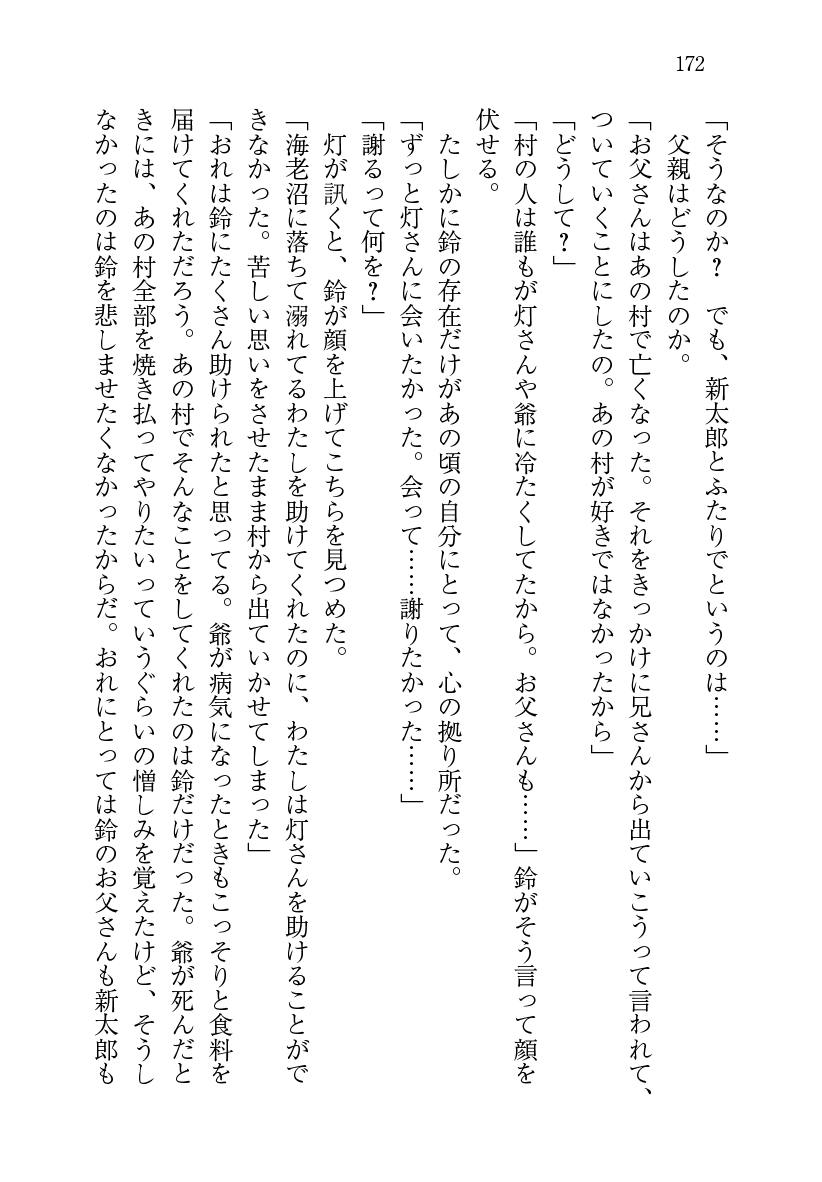 172
「そうなのか？　でも、新太郎とふたりでというのは……」
　父親はどうしたのか。
「お父さんはあの村で亡くなった。それをきっかけに兄さんから出ていこうって言われて、
ついていくことにしたの。あの村が好きではなかったから」
「どうして？」
「村の人は誰もが灯さんや爺に冷たくしてたから。お父さんも……」鈴がそう言って顔を
伏せる。
　たしかに鈴の存在だけがあの頃の自分にとって、心の拠り所だった。
「ずっと灯さんに会いたかった。会って……謝りたかった……」
「謝るって何を？」
　灯が訊くと、鈴が顔を上げてこちらを見つめた。
「海老沼に落ちて溺れてるわたしを助けてくれたのに、わたしは灯さんを助けることがで
きなかった。苦しい思いをさせたまま村から出ていかせてしまった」
「おれは鈴にたくさん助けられたと思ってる。爺が病気になったときもこっそりと食料を
届けてくれただろう。あの村でそんなことをしてくれたのは鈴だけだった。爺が死んだと
きには、あの村全部を焼き払ってやりたいっていうぐらいの憎しみを覚えたけど、そうし
なかったのは鈴を悲しませたくなかったからだ。おれにとっては鈴のお父さんも新太郎も